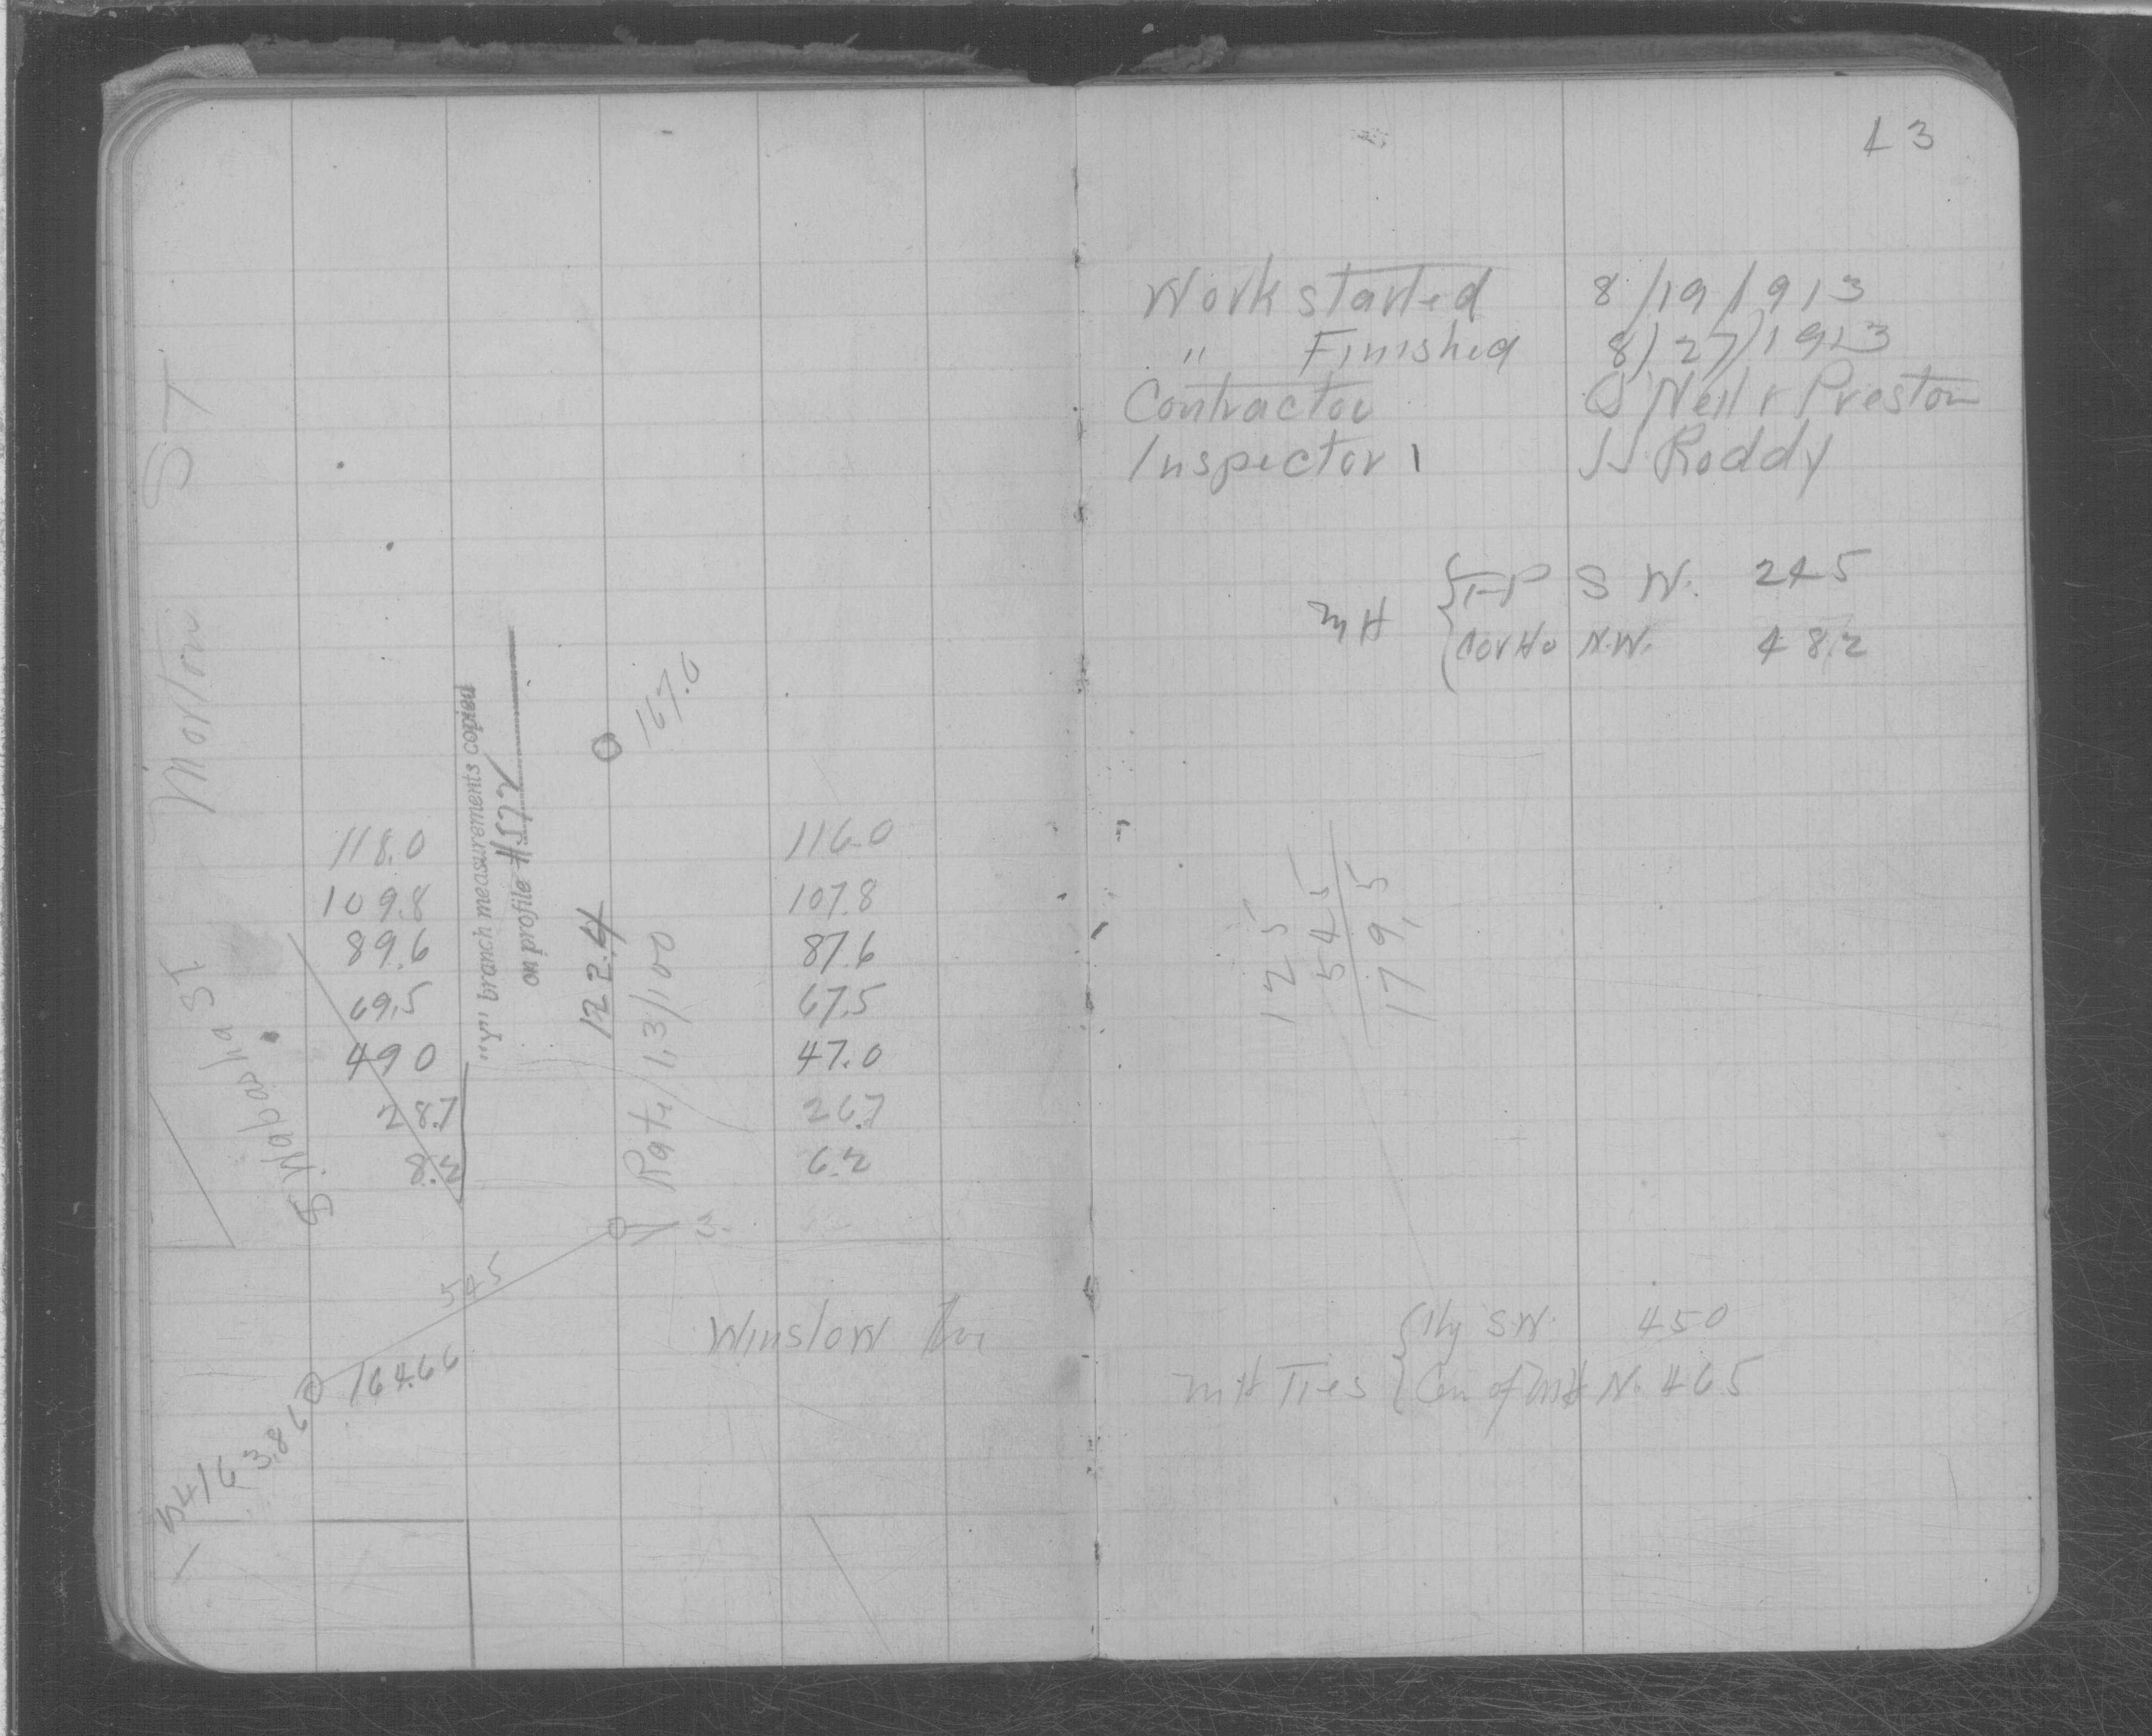 Morton ST
S. Wabasha ST.
118.0
109.8
89.6
69.5
490
28.7
8.2
"Y" branch measurements copied
on profile #572
122.4
Rate 1.3/100
167.0
116.0
107.8
87.6
67.5
47.0
26.7
6.2
545
164.66
163.86
Winslow Av
13
Work started 8/19/1913
" Finished 8/27/1913
Contractor O'Neil & Preston
Inspector JJ Roddy
MH { T-P S W. 245
Cor Ho N.W. 48.2
125
545
179.5
MH Ties { Hy S.W. 450
Cen of MH N. 465